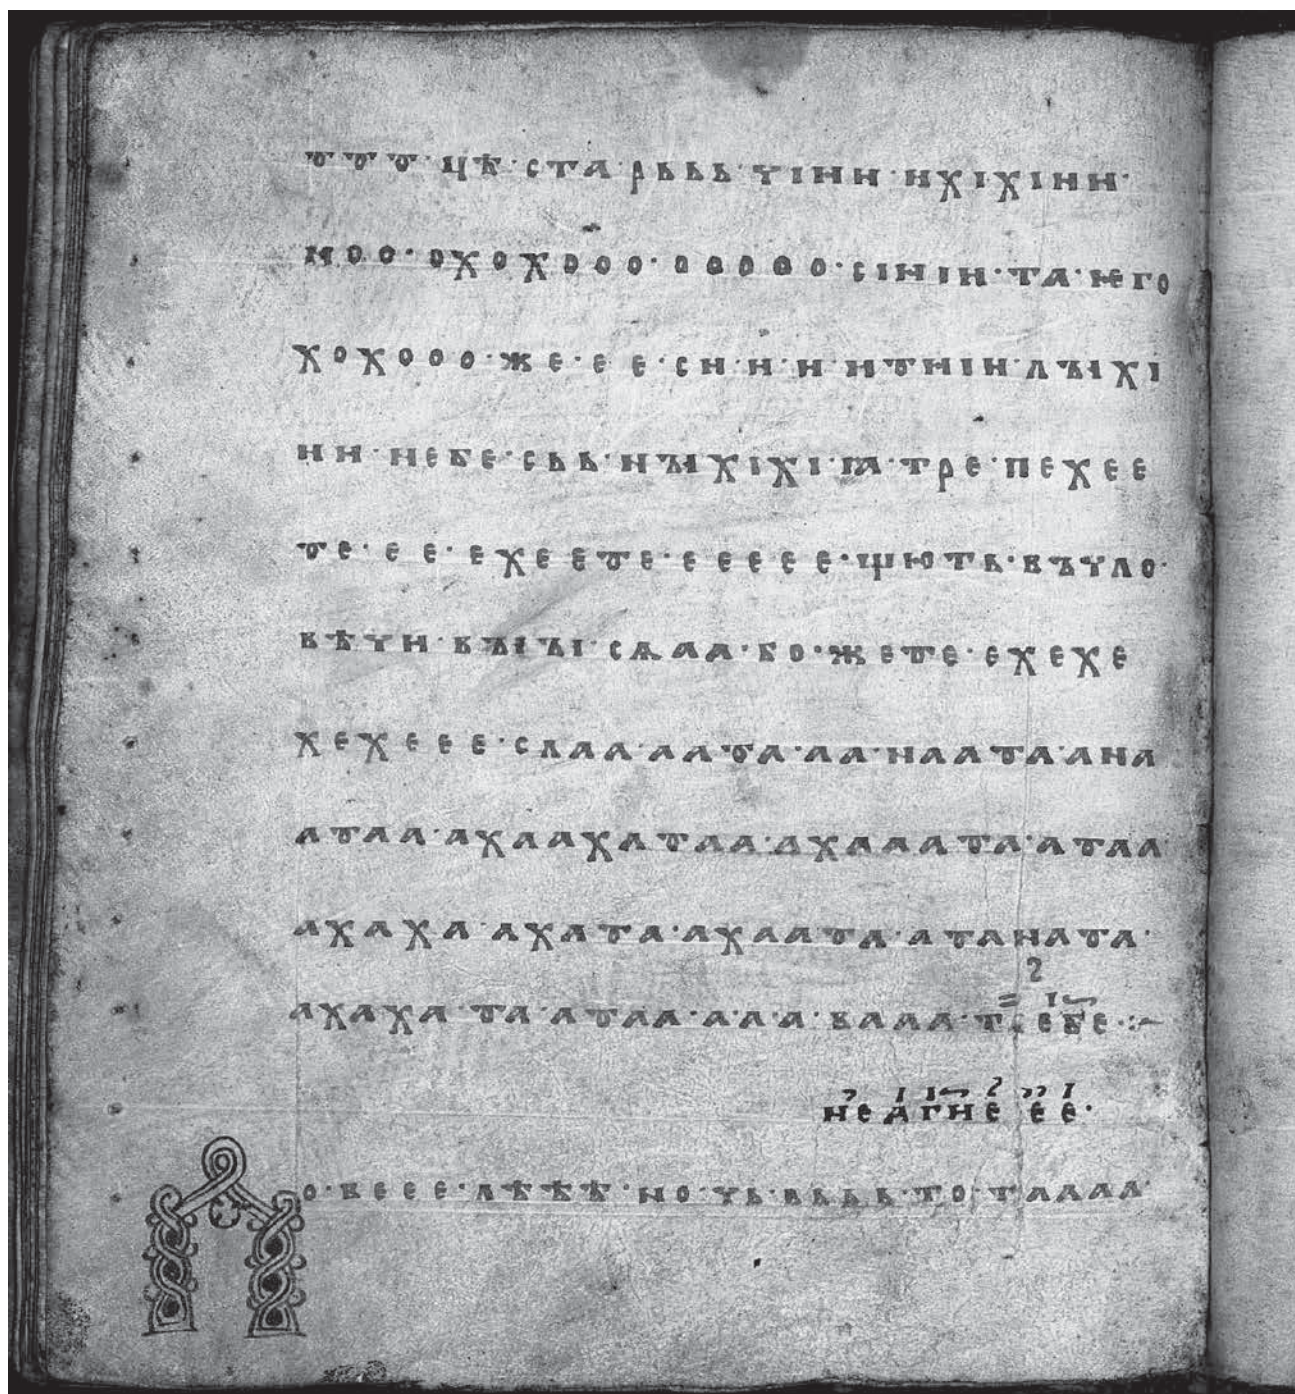 ꙋ ꙋ ꙋ · цѣ · ста · рььь · чіни · ихіхіни ·
моо · охохооо · ооооо · сініи · та · ѥго
хохооо · же · е е · си · и · и иꙋиіи · лꙑіхі
ии · небе · сьь · нꙑхіхі · ꙗ · тре · пехее
ꙋе · ее · ехееꙋе · еееее · щють · въчло ·
вѣчи · вꙑꙑ · сѧаа · бо · жеꙋе · ехехе
хехеее · слаа · ааꙋа · аа · наата · ана
аꙋаа · ахаахаꙋаа · ахаааꙋа · аꙋаа
ахаха · ахаꙋа · ахаатꙋа · аꙋанаꙋа ·
ахаха · ꙋа · аꙋаа · а · а · а · вааа · т ебе ·:~
неагне ее ·
По · веее · лѣѣѣ · но · чь · вььь · то · таааа ·